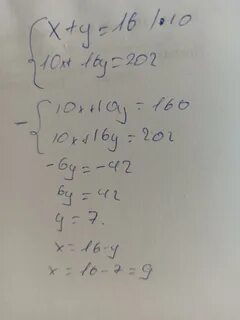 x+y=16 |·10
10x+16y=202
- 10x+10y=160
10x+16y=202
-6y=-42
6y=42
y=7.
x=16-y
x=16-7=9